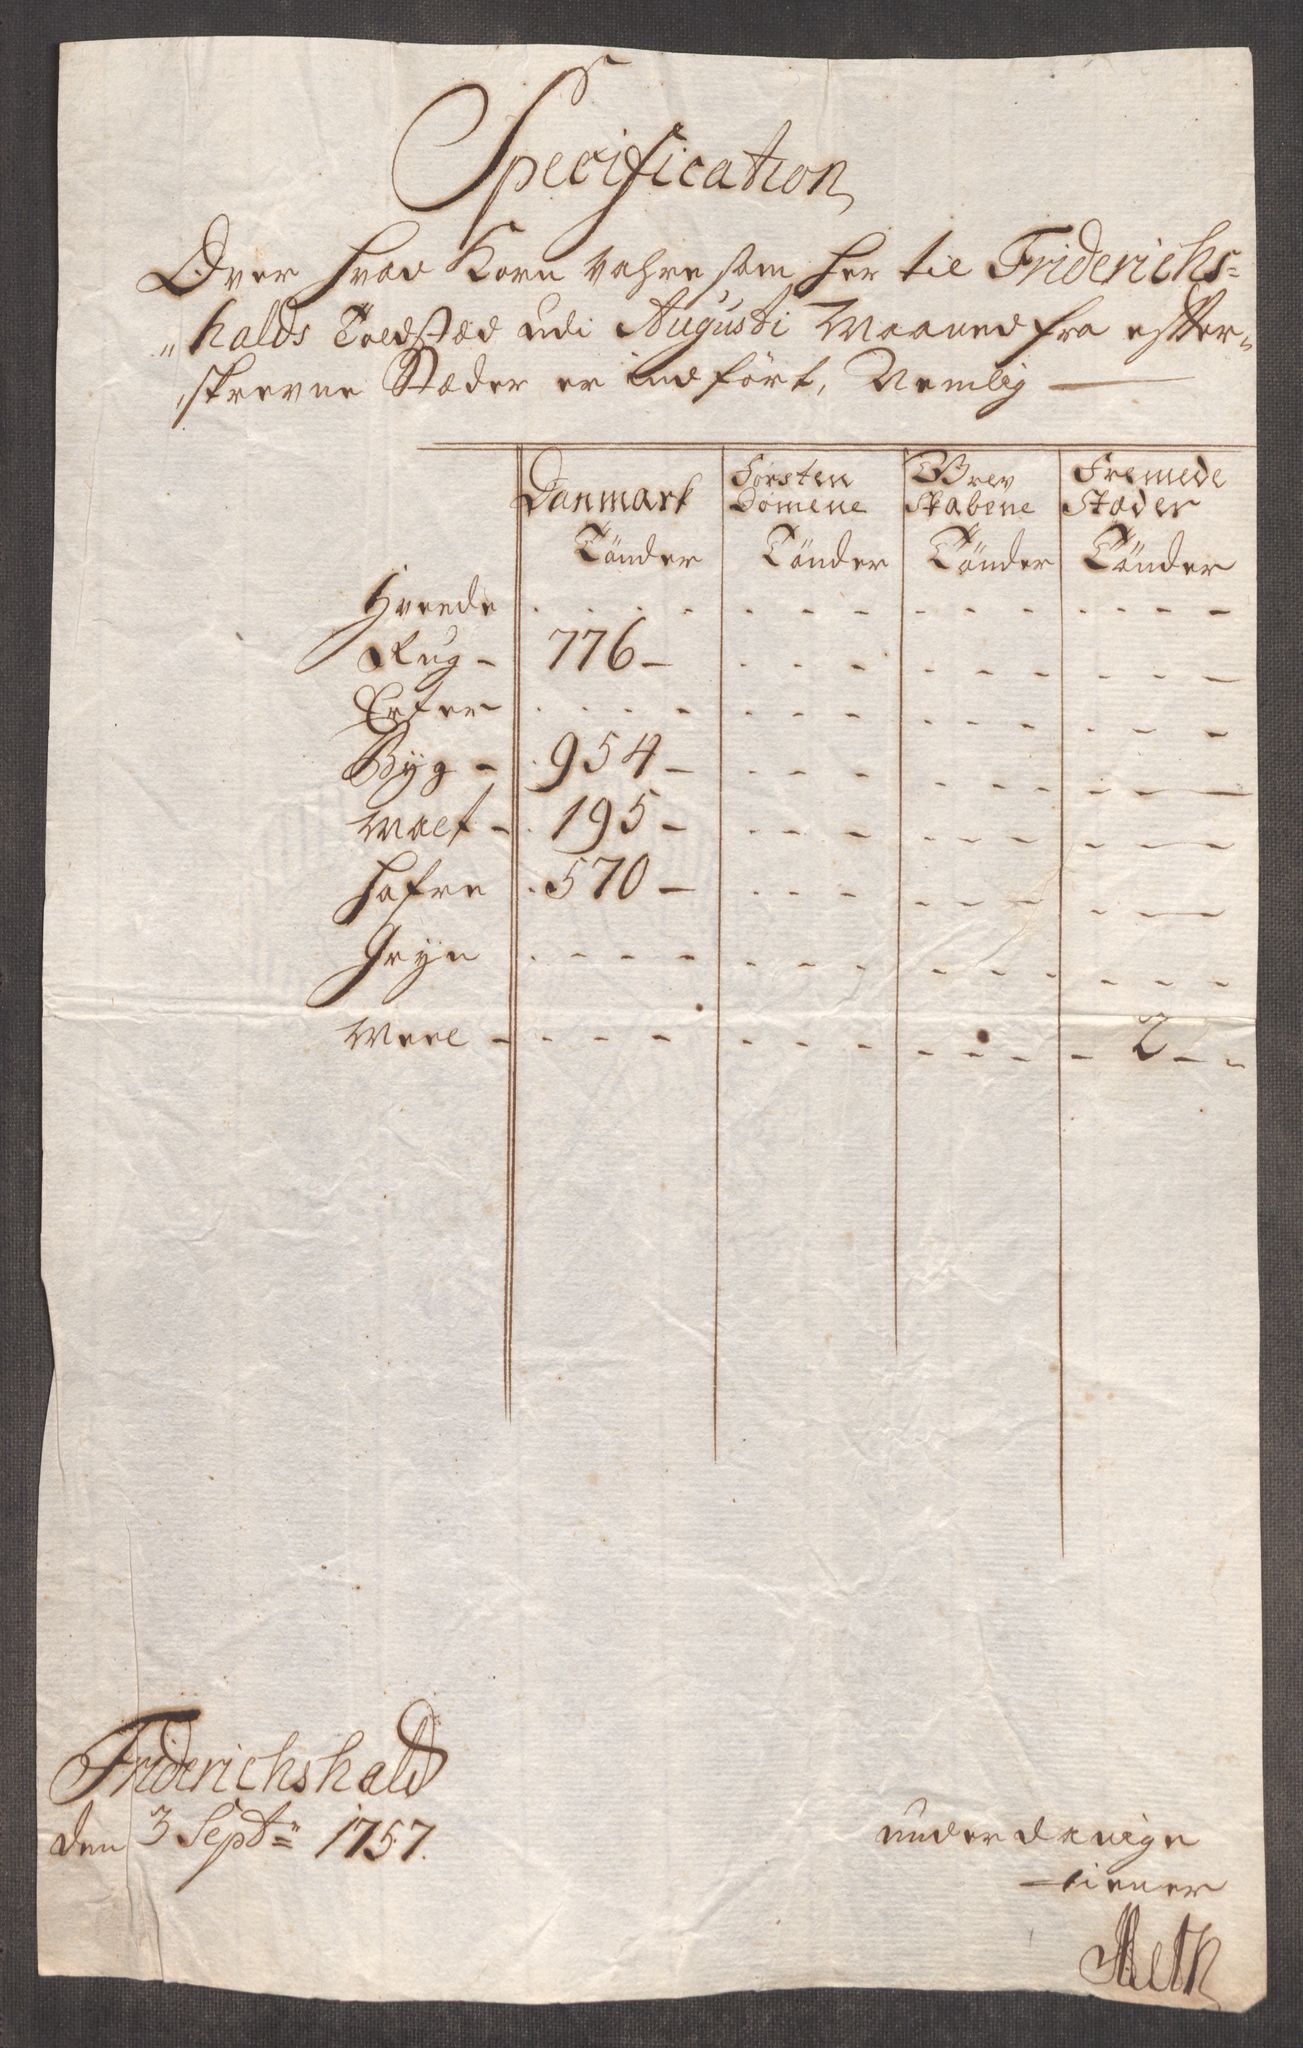 Specification
Over hvad Korn Vahre som her til Friderichs=
"halds Toldstæd udi Augusti Maaned fra efter=
skrevne Stæder er indført, Nemlig
Danmark Försten Dömene Grev Skabene Fremede Stæder
Tönder Tönder Tönder Tönder
Hveede . . . . - - - - - - - - -
Rug - 776 - . . - - - - - - -
Erter . . . - - - - - - - - - -
Byg - . 954 - - - - - - - - - -
Malt - . 195 - - - - - - - - - -
Hafre . 570 - . . - - - - - - -
Gryn . - - - - - - - - - - - -
Meel - - - - - - - - - - - - 2 - -
Friderichshald
den 3 Septr= 1757.
underdanige
tiener